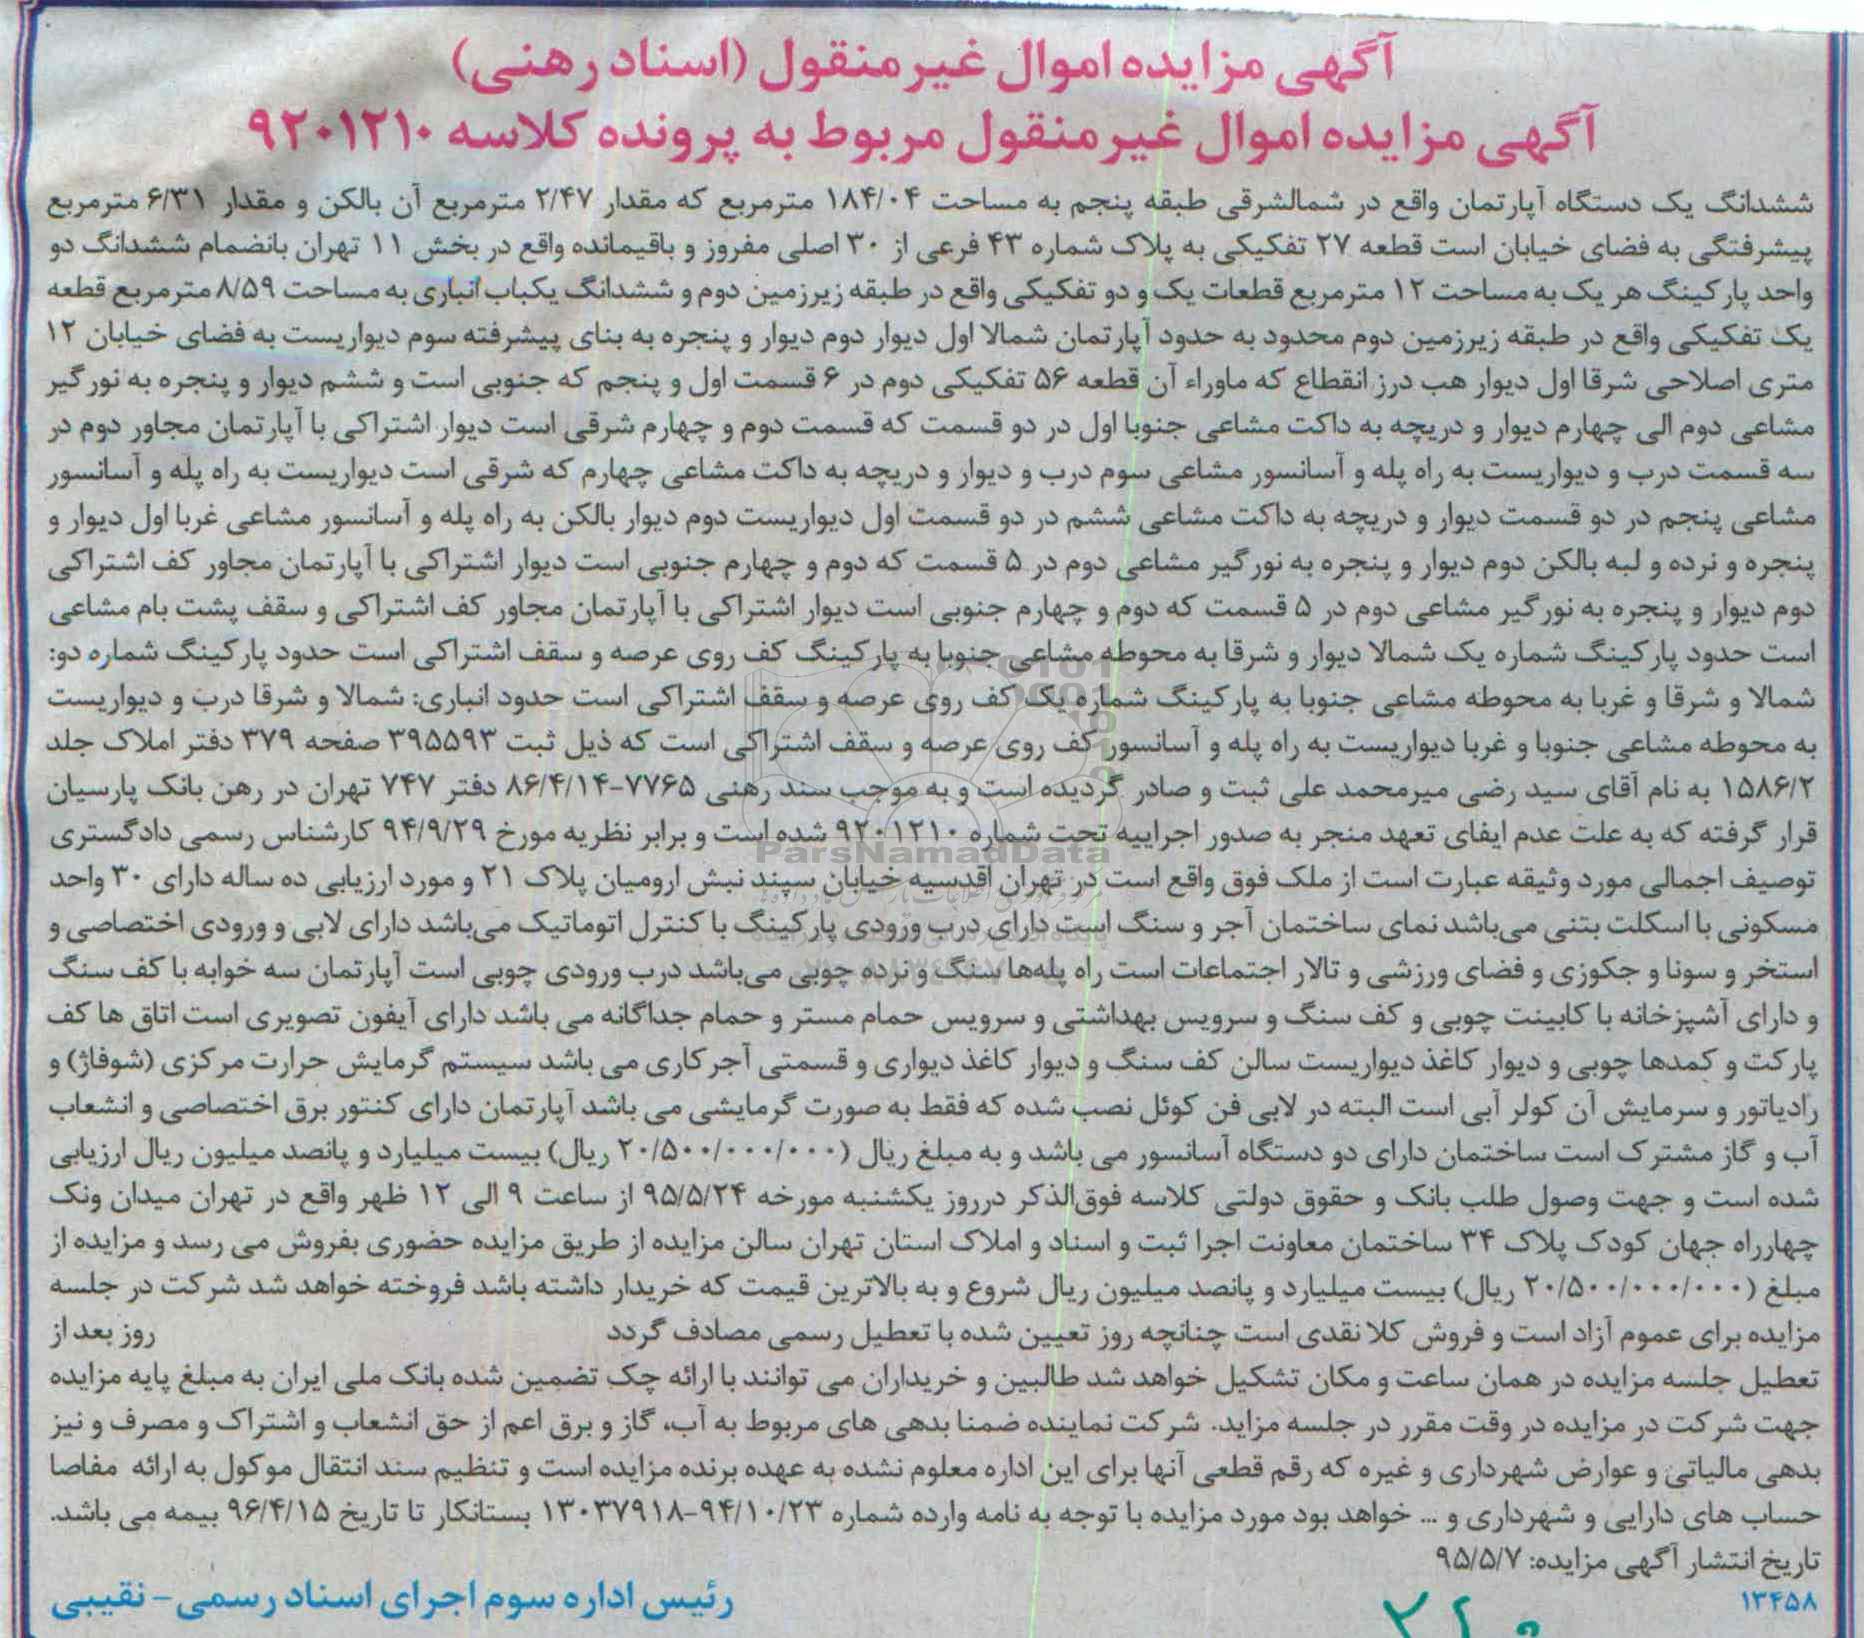 آگهی مزایده اموال غیرمنقول (اسناد رهنی)
آگهی مزایده اموال غیرمنقول مربوط به پرونده کلاسه ۹۲۰۱۲۱۰
ششدانگ یک دستگاه آپارتمان واقع در شمالشرقی طبقه پنجم به مساحت ۱۸۴/۰۴ مترمربع که مقدار ۲/۴۷ مترمربع آن بالکن و مقدار ۶/۳۱ مترمربع
پیشرفتگی به فضای خیابان است قطعه ۲۷ تفکیکی به پلاک شماره ۴۳ فرعی از ۳۰ اصلی مفروز و باقیمانده واقع در بخش ۱۱ تهران بانضمام ششدانگ دو
واحد پارکینگ هر یک به مساحت ۱۲ مترمربع قطعات یک و دو تفکیکی واقع در طبقه زیرزمین دوم و ششدانگ یکباب انباری به مساحت ۸/۵۹ مترمربع قطعه
یک تفکیکی واقع در طبقه زیرزمین دوم محدود به حدود آپارتمان شمالا اول دیوار دوم دیوار و پنجره به بنای پیشرفته سوم دیواریست به فضای خیابان ۱۲
متری اصلاحی شرقا اول دیوار هب درز انقطاع که ماوراء آن قطعه ۵۶ تفکیکی دوم در ۶ قسمت اول و پنجم که جنوبی است و ششم دیوار و پنجره به نورگیر
مشاعی دوم الی چهارم دیوار و دریچه به داکت مشاعی جنوبا اول در دو قسمت که قسمت دوم و چهارم شرقی است دیوار اشتراکی با آپارتمان مجاور دوم در
سه قسمت درب و دیواریست به راه پله و آسانسور مشاعی سوم درب و دیوار و دریچه به داکت مشاعی چهارم که شرقی است دیواریست به راه پله و آسانسور
مشاعی پنجم در دو قسمت دیوار و دریچه به داکت مشاعی ششم در دو قسمت اول دیواریست دوم دیوار بالکن به راه پله و آسانسور مشاعی غربا اول دیوار و
پنجره و نرده و لبه بالکن دوم دیوار و پنجره به نورگیر مشاعی دوم در ۵ قسمت که دوم و چهارم جنوبی است دیوار اشتراکی با آپارتمان مجاور کف اشتراکی
دوم دیوار و پنجره به نورگیر مشاعی دوم در ۵ قسمت که دوم و چهارم جنوبی است دیوار اشتراکی با آپارتمان مجاور کف اشتراکی و سقف پشت بام مشاعی
است حدود پارکینگ شماره یک شمالا دیوار و شرقا به محوطه مشاعی جنوبا به پارکینگ کف روی عرصه و سقف اشتراکی است حدود پارکینگ شماره دو:
شمالا و شرقا و غربا به محوطه مشاعی جنوبا به پارکینگ شماره یک کف روی عرصه و سقف اشتراکی است حدود انباری: شمالا و شرقا درب و دیواریست
به محوطه مشاعی جنوبا و غربا دیواریست به راه پله و آسانسور کف روی عرصه و سقف اشتراکی است که ذیل ثبت ۳۹۵۵۹۳ صفحه ۳۷۹ دفتر املاک جلد
۱۵۸۶/۲ به نام آقای سید رضی میرمحمد علی ثبت و صادر گردیده است و به موجب سند رهنی ۷۷۶۵-۸۶/۴/۱۴ دفتر ۷۴۷ تهران در رهن بانک پارسیان
قرار گرفته که به علت عدم ایفای تعهد منجر به صدور اجراییه تحت شماره ۹۲۰۱۲۱۰ شده است و برابر نظریه مورخ ۹۴/۹/۲۹ کارشناس رسمی دادگستری
ParsNamadData
توصیف اجمالی مورد وثیقه عبارت است از ملک فوق واقع است در تهران اقدسیه خیابان سپند نبش ارومیان پلاک ۲۱ و مورد ارزیابی ده ساله دارای ۳۰ واحد
مسکونی با اسکلت بتنی می‌باشد نمای ساختمان آجر و سنگ است دارای درب ورودی پارکینگ با کنترل اتوماتیک می‌باشد دارای لابی و ورودی اختصاصی و
استخر و سونا و جکوزی و فضای ورزشی و تالار اجتماعات است راه پله‌ها سنگ و نرده چوبی می‌باشد درب ورودی چوبی است آپارتمان سه خوابه با کف سنگ
و دارای آشپزخانه با کابینت چوبی و کف سنگ و سرویس بهداشتی و سرویس حمام مستر و حمام جداگانه می باشد دارای آیفون تصویری است اتاق ها کف
پارکت و کمدها چوبی و دیوار کاغذ دیواریست سالن کف سنگ و دیوار کاغذ دیواری و قسمتی آجرکاری می باشد سیستم گرمایش حرارت مرکزی (شوفاژ) و
رادیاتور و سرمایش آن کولر آبی است البته در لابی فن کوئل نصب شده که فقط به صورت گرمایشی می باشد آپارتمان دارای کنتور برق اختصاصی و انشعاب
آب و گاز مشترک است ساختمان دارای دو دستگاه آسانسور می باشد و به مبلغ ریال (۲۰/۵۰۰/۰۰۰/۰۰۰ ریال) بیست میلیارد و پانصد میلیون ریال ارزیابی
شده است و جهت وصول طلب بانک و حقوق دولتی کلاسه فوق‌الذکر درروز یکشنبه مورخه ۹۵/۵/۲۴ از ساعت ۹ الی ۱۲ ظهر واقع در تهران میدان ونک
چهارراه جهان کودک پلاک ۳۴ ساختمان معاونت اجرا ثبت و اسناد و املاک استان تهران سالن مزایده از طریق مزایده حضوری بفروش می رسد و مزایده از
مبلغ (۲۰/۵۰۰/۰۰۰/۰۰۰ ریال) بیست میلیارد و پانصد میلیون ریال شروع و به بالاترین قیمت که خریدار داشته باشد فروخته خواهد شد شرکت در جلسه
مزایده برای عموم آزاد است و فروش کلا نقدی است چنانچه روز تعیین شده با تعطیل رسمی مصادف گردد روز بعد از
تعطیل جلسه مزایده در همان ساعت و مکان تشکیل خواهد شد طالبین و خریداران می توانند با ارائه چک تضمین شده بانک ملی ایران به مبلغ پایه مزایده
جهت شرکت در مزایده در وقت مقرر در جلسه مزاید. شرکت نماینده ضمنا بدهی های مربوط به آب، گاز و برق اعم از حق انشعاب و اشتراک و مصرف و نیز
بدهی مالیاتی و عوارض شهرداری و غیره که رقم قطعی آنها برای این اداره معلوم نشده به عهده برنده مزایده است و تنظیم سند انتقال موکول به ارائه مفاصا
حساب های دارایی و شهرداری و ... خواهد بود مورد مزایده با توجه به نامه وارده شماره ۹۴/۱۰/۲۳-۱۳۰۳۷۹۱۸ بستانکار تا تاریخ ۹۶/۴/۱۵ بیمه می باشد.
تاریخ انتشار آگهی مزایده: ۹۵/۵/۷
۱۳۴۵۸
رئیس اداره سوم اجرای اسناد رسمی - نقیبی